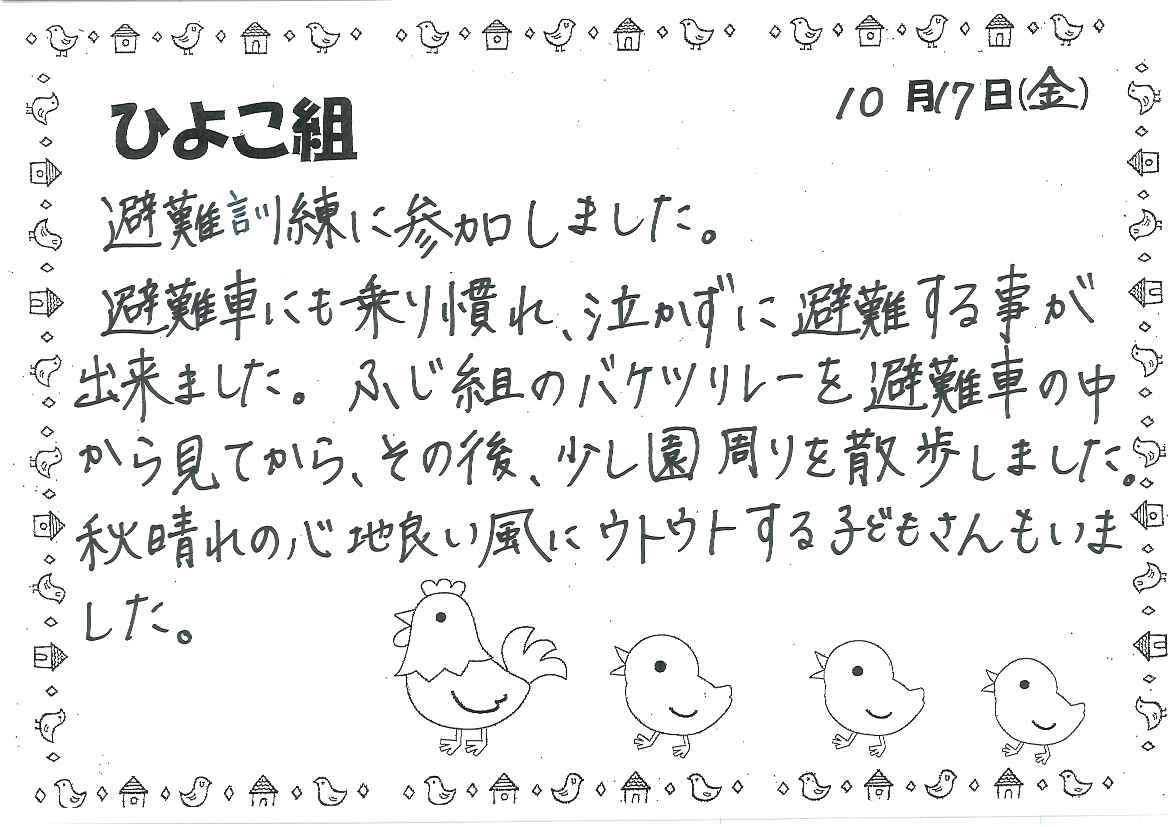 10月17日(金)
ひよこ組
避難訓練に参加しました。
避難車にも乗り慣れ、泣かずに避難する事が
出来ました。ふじ組のバケツリレーを避難車の中
から見てから、その後、少し園周りを散歩しました。
秋晴れの心地良い風にウトウトする子どもさんもいま
した。